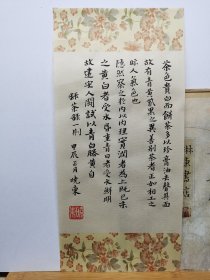 茶色貴白而餅茶多以珍膏油去聲其面
故有青黃紫黑之異善別茶者正如相工之
眎人氣色也
隱然察之於內以肉理實潤者為上既已末
之黃白者受水昏重青白者受水鮮明
故建安人鬬試以青白勝黃白
錄茶錄一則 甲辰 月 曉東